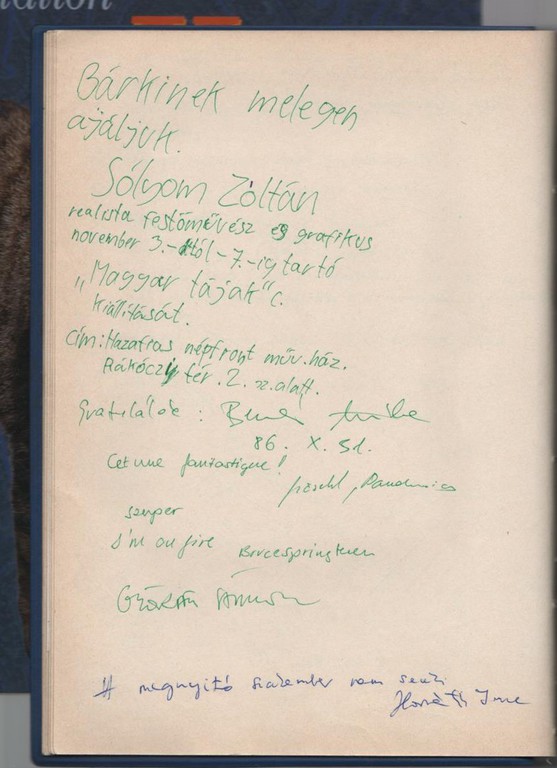 ation
Bárkinek melegen
ajáljuk.
Sólyom Zoltán
realista festőművész és grafikus
november 3.-ától-7.-ig tartó
„Magyar tájak" c.
kiállítását.
Cím: Hazafias népfront műv. ház.
Rákóczi tér. 2. sz. alatt.
Gratulálok:
86. X. 31.
Cet une fantastique!
szuper
I'm on fire Bruce Springsteen
A megnyitó november nem
Horváth Imre